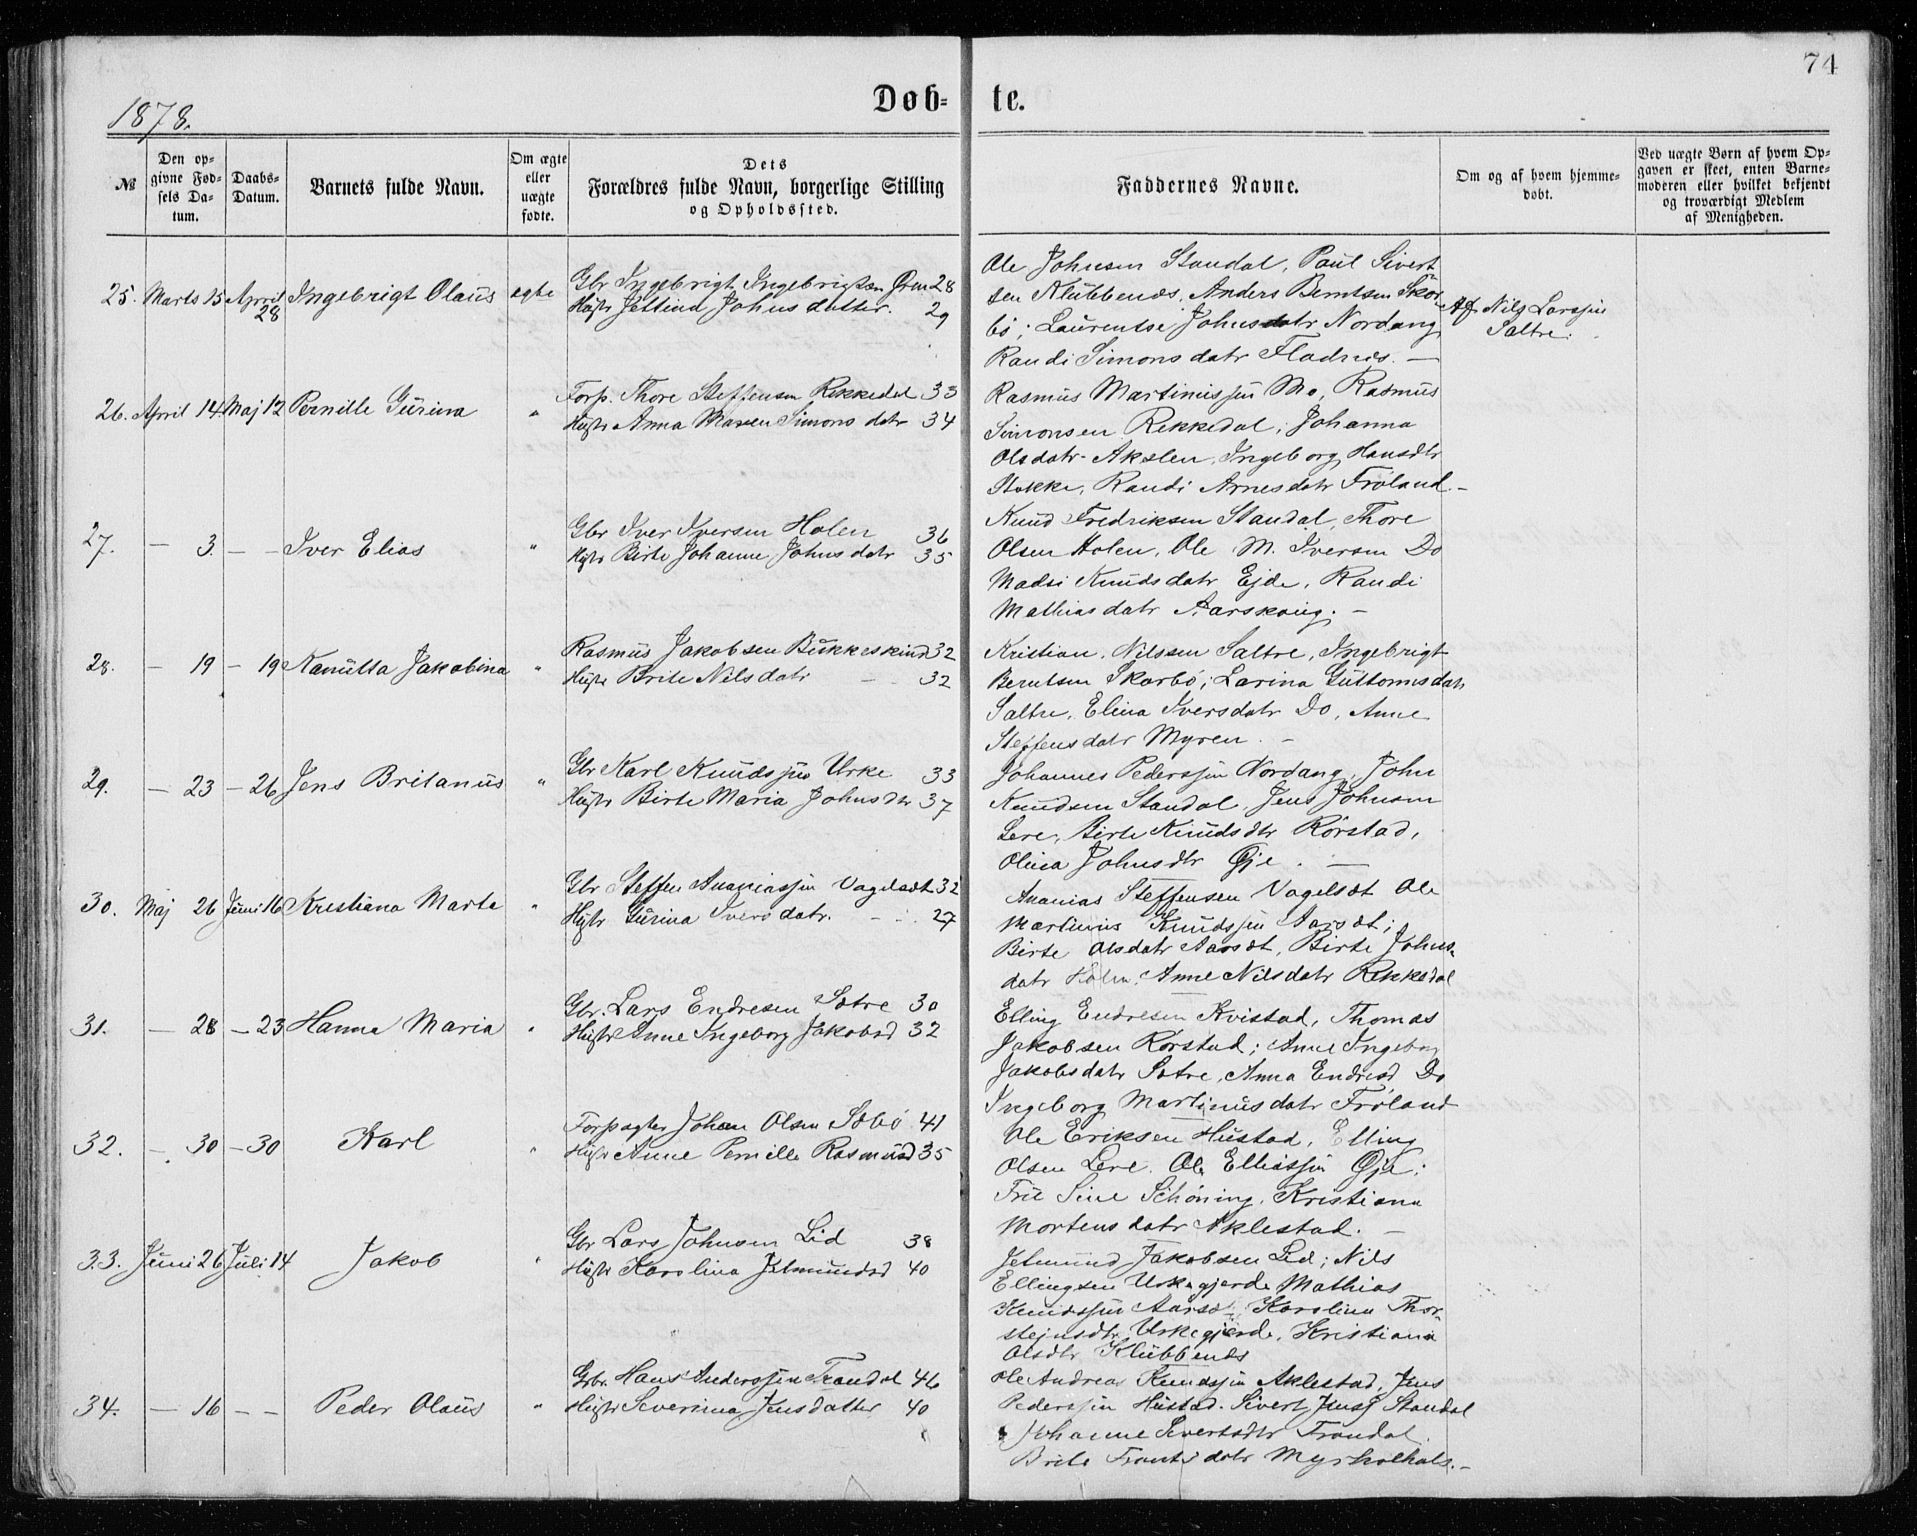 74
1878.
Døb- te.
№
Den op-
givne Fød-
sels Da-
tum.
Daabs-
Datum.
Barnets fulde Navn.
Om ægte
eller
uægte
fødte.
Dets
Forældres fulde Navn, borgerlige Stilling
og Opholdssted.
Faddernes Navne.
Om og af hvem hjemme-
døbt.
Ved uægte Børn af hvem Op-
gaven er skeet, enten Barne-
moderen eller hvilket bekjendt
og troværdigt Medlem
af Menigheden.
25. Marts 15 April 28 Ingebrigt Olaus egte
Gbr Ingebrigt Ingebrigtsen Øren 28
Hustr Jettine Johnsdatter. 29
Ole Johnsen Standal, Paul Sivert
sen Klubbenes, Anders Berntsen Skor
bö; Laurentse Johnsdatr Nordang
Randi Simonsdatr Fladnes. —
Af Nils Larssen
Sætre.
26. April 14 Maj 12 Pernille Gurina "
Forp. Thore Steffensen Rekkedal 33
Hustr Anna Maren Simonsdatr 34
Rasmus Martinussen Mo, Rasmus
Simonsen Rekkedal; Johanna
Olsdatr Akslen, Ingeborg Hansdtr
Stokke, Randi Arnesdatr Frøland. –
27. — 3 — — Iver Elias "
Gbr Iver Iversen Holen 36
Hustr Birte Johanne Johnsdatr 35
Knud Fredriksen Standal, Thore
Olsen Holen, Ole M. Iversen Do
Madsi Knudsdatr Ejde, Randi
Mathiasdatr Aarskoug. —
28. — 19 — 19 Kanutta Jakobina "
Rasmus Jakobsen Bukkeskind 32
Hustr Brite Nilsdatr — 32
Kristian Nilssen Sætre, Ingebrigt
Berntsen Skorbö; Larina Guttormsdatr
Sætre, Elina Iversdatr Do, Anne
Steffensdatr Myren. –
29. — 23 — 26 Jens Britanus "
Gbr Karl Knudssen Urke 33
Hustr Birte Maria Johnsdtr 37
Johannes Pederssen Nordang, John
Knudsen Standal, Jens Johnsen
Lere, Birte Knudsdtr Rørstad,
Olina Johnsdtr Øje. —
30. Maj 26 Juni 16 Kristiana Marte "
Gbr Steffen Ananiassen Vagelsæt 32
Hustr Gurina Iversdatr. — 27
Ananias Steffensen Vagelsæt Ole
Martinus Knudssen Aarsæt;
Birte Olsdatr Aarsæt, Birte Johns-
datr Holen. Anne Nilsdatr Rekkedal
31. — 28 — 23 Hanna Maria "
Gbr. Lars Endresen Sætre 30
Hustr Anne Ingeborg Jakobsd 32
Elling Endresen Kvistad, Thomas
Jakobsen Rørstad; Anne Ingeborg
Jakobsdatr Sætre, Anna Endresd Do
Ingeborg Martinusdatr Frøland
32. — 30 — 30 Karl "
Forpagter Johan Olsen Sæbö 41
Hustr Anne Pernille Rasmusd 35
Ole Eriksen Hustad, Elling
Olsen Lere. Ole Eliassen Øje;
Fru Sine Schöning, Kristiana
Mortensdatr Aklestad. —
33. Juni 26 Juli 14 Jakob "
Gbr Lars Johnsen Lid 38
Hustr Karolina Jetmundsd 40
Jetmund Jakobsen Lid; Nils
Ellingsen Urkegjerde Mathias
Knudssen Aarsæt, Karolina Thor-
stejnsdtr Urkegjerde, Kristiana
Olsdtr Klubbenes
34. — 16 — — Peder Olaus "
Gbr. Hans Anderssen Trandal 46
Hustr Severina Jensdatter 40
Ole Andreas Knudssen Aklestad, Jens
Pederssen Hustad. Sivert Jenss Standal
Johanne Sivertsdtr Trandal.
Brite Frantsdatr Myrholhals. –